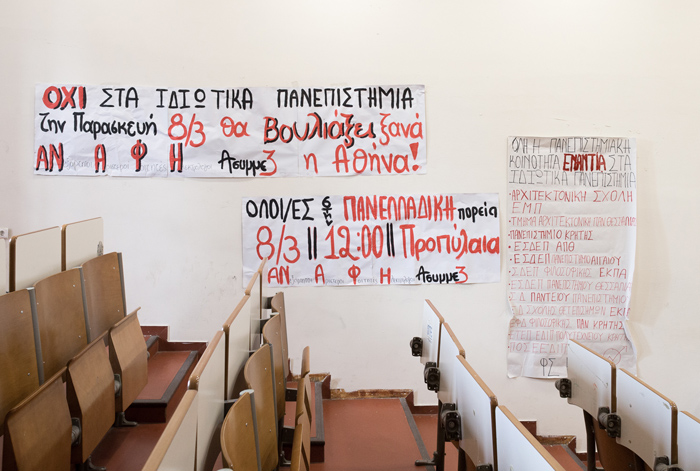 ΟΧΙ ΣΤΑ ΙΔΙΩΤΙΚΑ ΠΑΝΕΠΙΣΤΗΜΙΑ
την Παρασκευή 8/3 θα Βουλιάξει ξανά
ΑΝ Α Φ Η Ασυμμε3 η Αθήνα!
ΟΛΟΙ/ΕΣ στην ΠΑΝΕΛΛΑΔΙΚΗ πορεία
8/3 || 12:00 || Προπύλαια
ΑΝ Α Φ Η Ασυμμε3
ΟΛΗ Η ΠΑΝΕΠΙΣΤΗΜΙΑΚΗ
ΚΟΙΝΟΤΗΤΑ ΕΝΑΝΤΙΑ ΣΤΑ
ΙΔΙΩΤΙΚΑ ΠΑΝΕΠΙΣΤΗΜΙΑ
• ΑΡΧΙΤΕΚΤΟΝΙΚΗ ΣΧΟΛΗ
ΕΜΠ
• ΤΜΗΜΑ ΑΡΧΙΤΕΚΤΟΝΩΝ ΠΑΝ ΘΕΣΣΑΛΙΑΣ
ΠΑΝΕΠΙΣΤΗΜΙΟ ΚΡΗΤΗΣ
• ΕΣΔΕΠ ΑΠΘ
• ΕΣΔΕΠ ΠΑΝΕΠΙΣΤΗΜΙΟ ΑΙΓΑΙΟΥ
ΦΙΛΟΣΟΦΙΚΗΣ ΕΚΠΑ
ΠΑΝΕΠΙΣΤΗΜΙΟΥ
ΠΑΝΤΕΙΟΥ ΠΑΝΕΠΙΣΤΗΜΙΟ
ΦΙΛΟΣΟΦΙΚΗΣ ΠΑΝ ΚΡΗΤΗΣ
ΦΣ